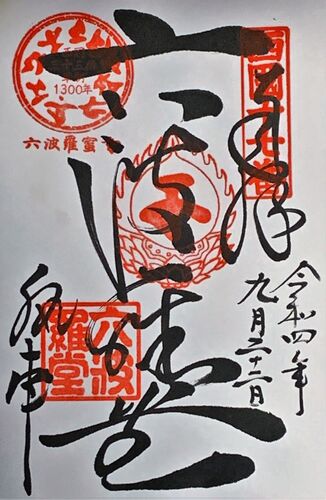 西国十七番
奉拝
令和四年
九月二十二日
六波羅堂
1300年
六波羅蜜寺
六波羅堂
執事